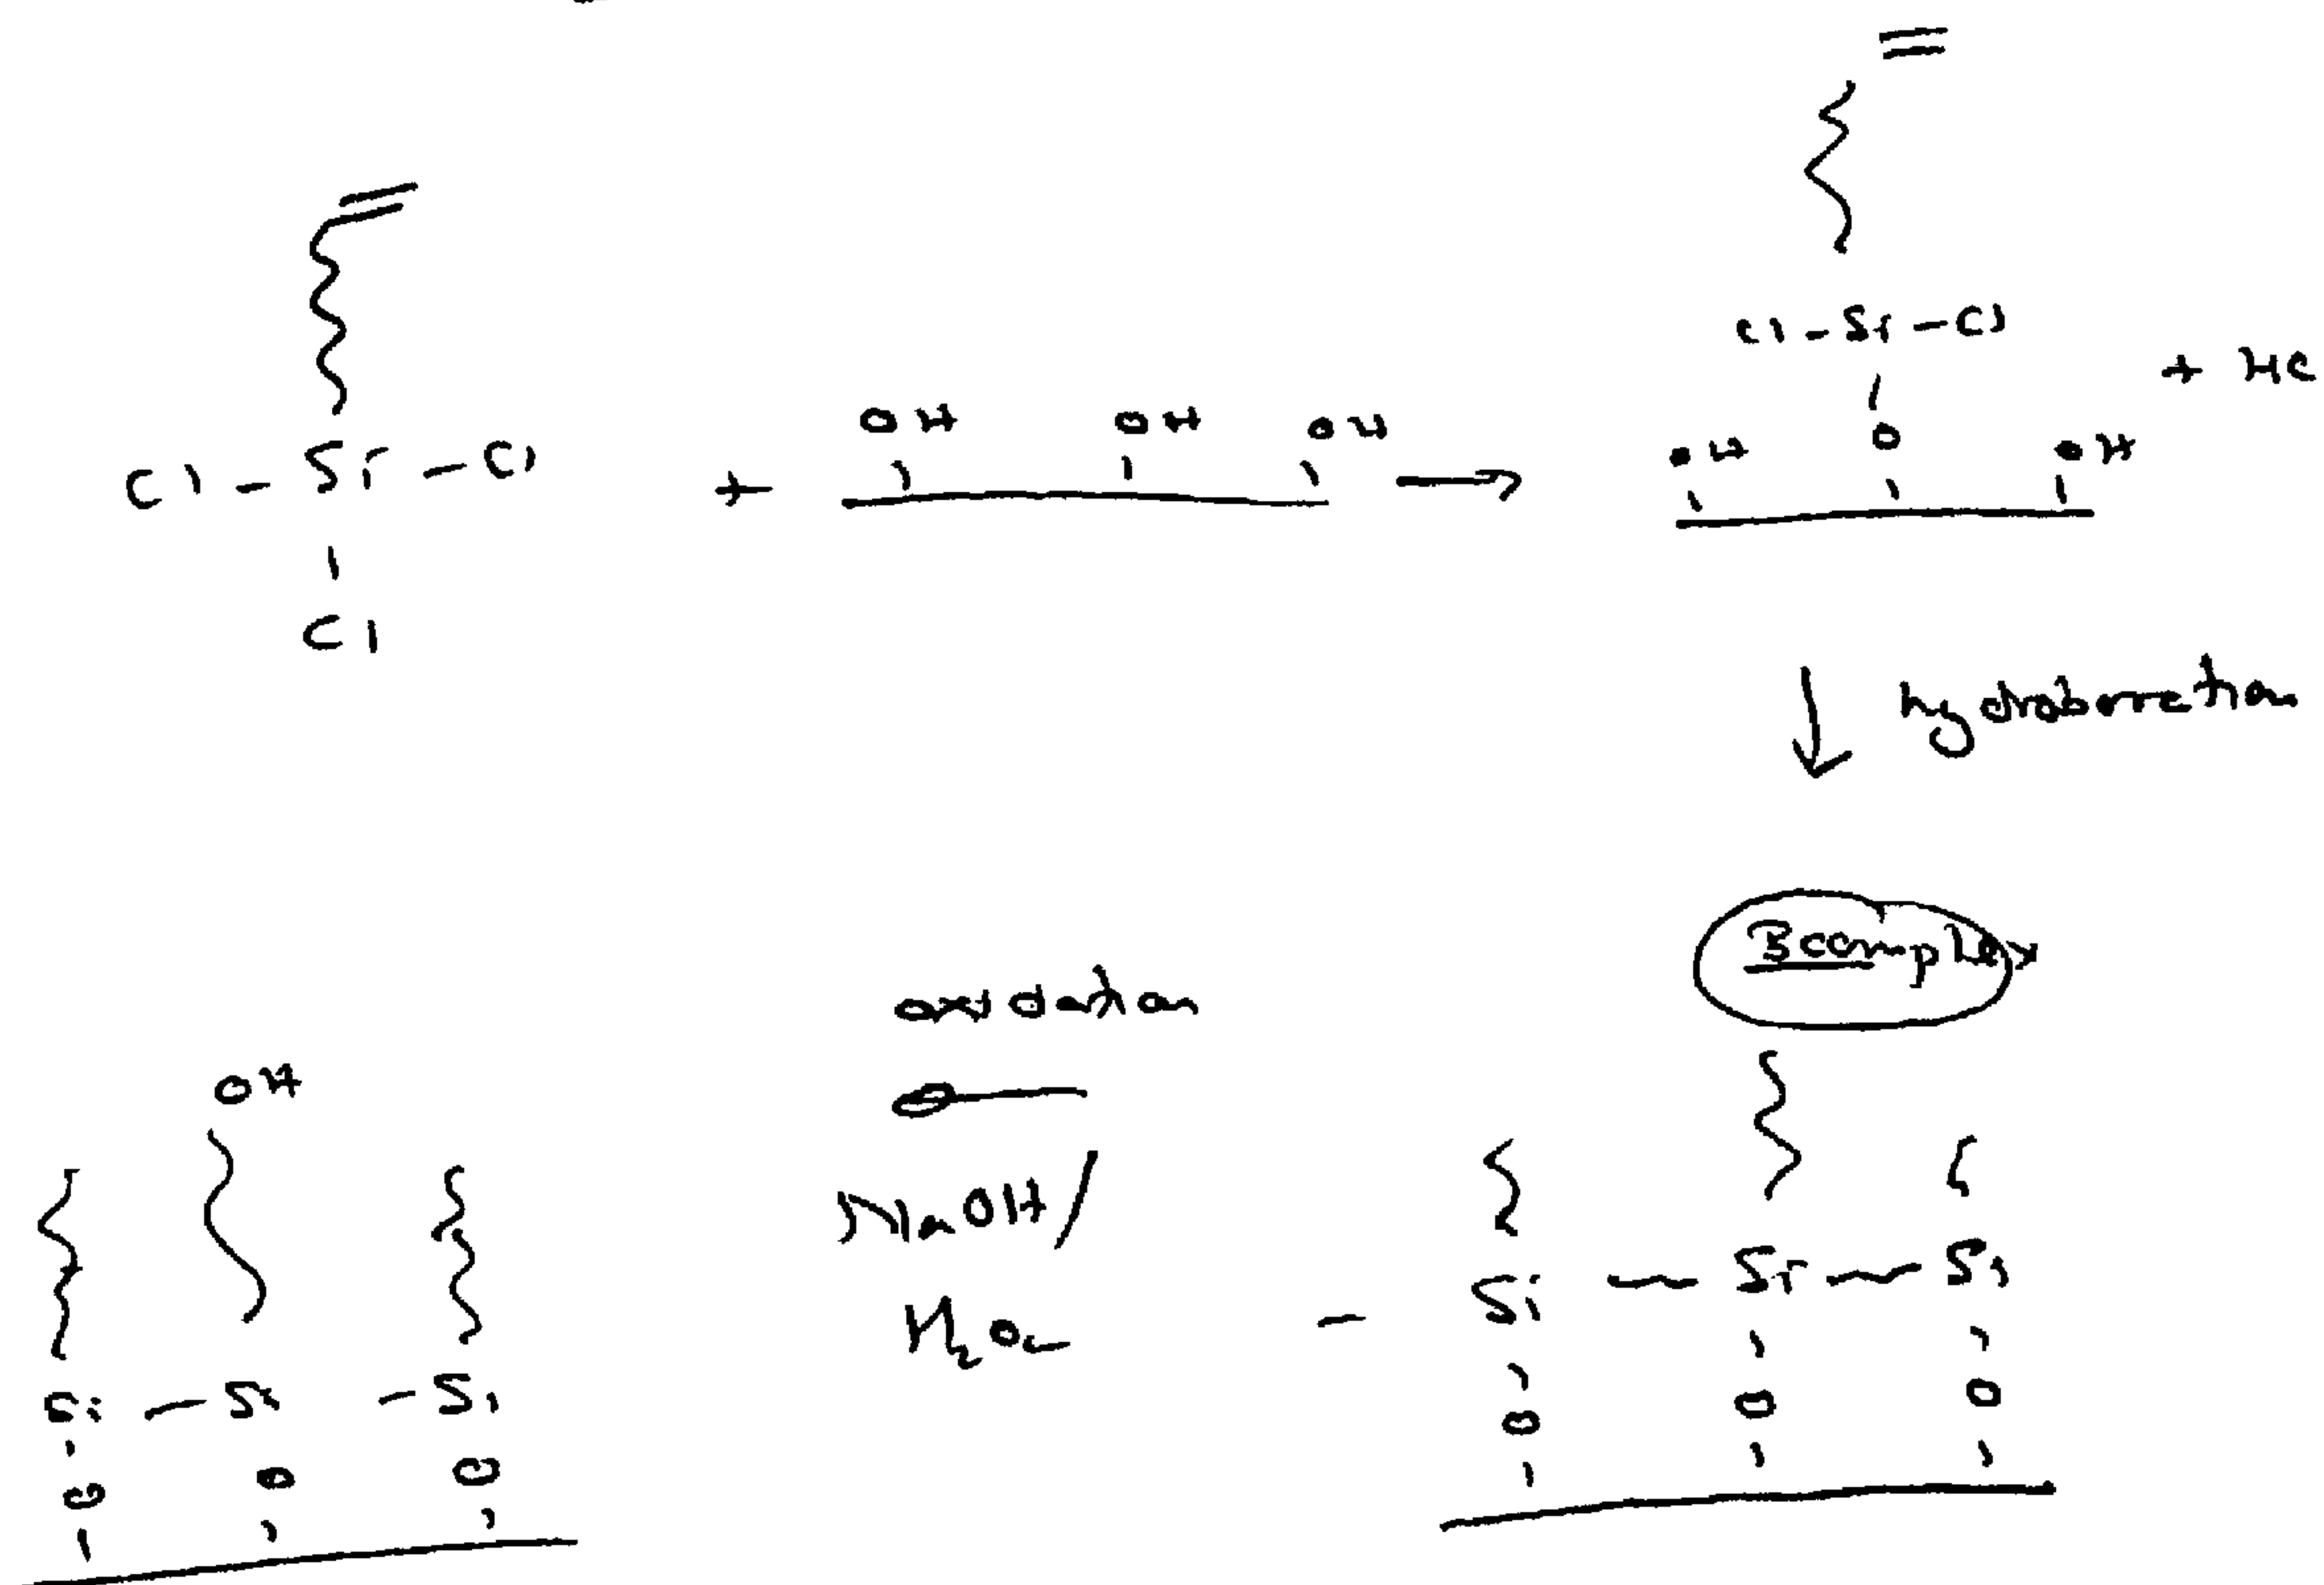 Cl - Si - Cl
Cl
+
OH OH OH
Cl - Si - Cl
O
OH OH
+ HC
hydroboration
B complex
Si - Si - Si
O O O
oxidation
NaOH/
H2O2
OH
Si - Si - Si
O O O